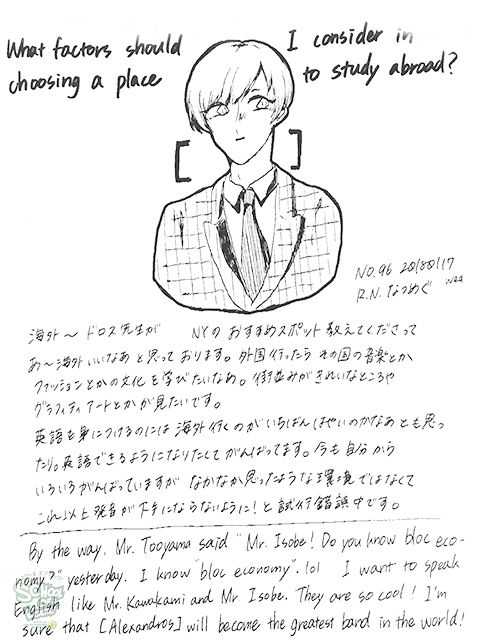 What factors should I consider in
choosing a place to study abroad?
NO.96 20180117
R.N. なつめぐ wed
海外〜 ドロス先生が NYの おすすめスポット教えてくださって
あ〜海外いいなあと思っております。外国行ったら その国の音楽とか
ファッションとかの文化を学びたいなぁ。街並みがきれいなところや
グラフィティアートとかが見たいです。
英語を身につけるのには海外行くのがいちばんはやいのかなあとも思っ
たり。英語できるようになりたくてがんばってます。今も自分から
いろいろがんばっていますが なかなか思ったような環境ではなくて
これ以上発音が下手にならないように!と試行錯誤中です。
By the way, Mr. Tooyama said "Mr. Isobe! Do you know bloc eco-
nomy?" yesterday. I know "bloc economy". lol I want to speak
English like Mr. Kawakami and Mr Isobe. They are so cool! I'm
sure that [Alexandros] will become the greatest band in the world!